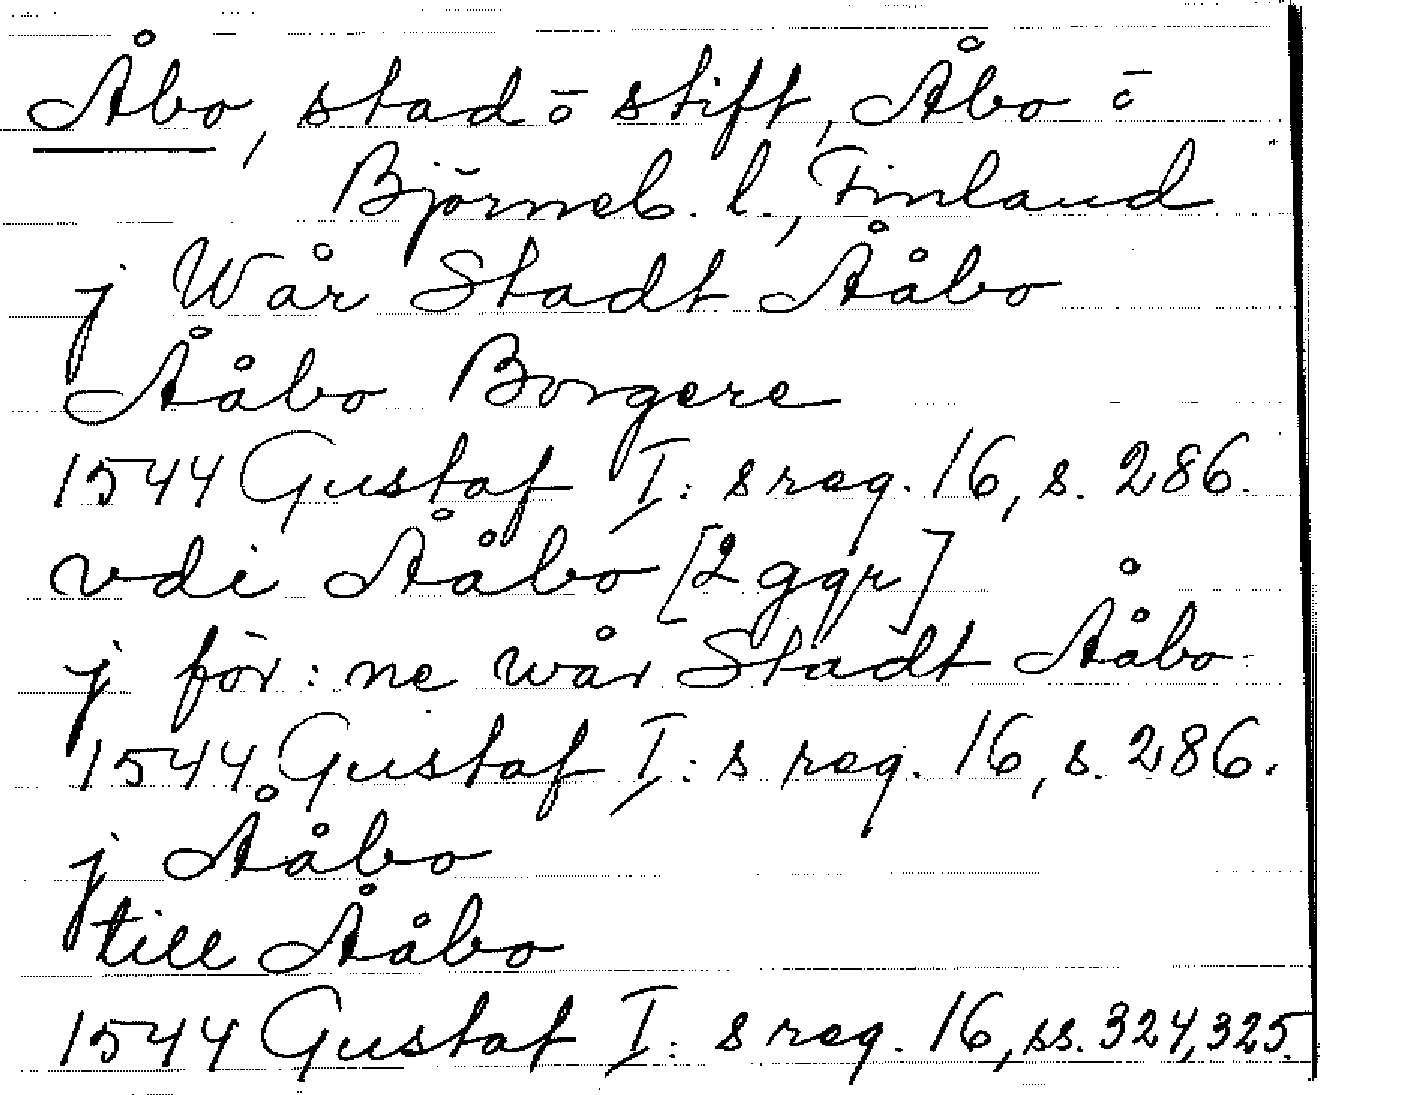 Åbo, stad o stift, Åbo o
Björneb. l., Finland
j Wår Stadt Ååbo
Ååbo Borgere
1544 Gustaf I:s reg. 16, s. 286.
vdi Ååbo [2 ggr]
j för:ne wår Stadt Ååbo
1544 Gustaf I:s reg. 16, s. 286.
j Ååbo
till Ååbo
1544 Gustaf I:s reg. 16, ss. 324, 325.